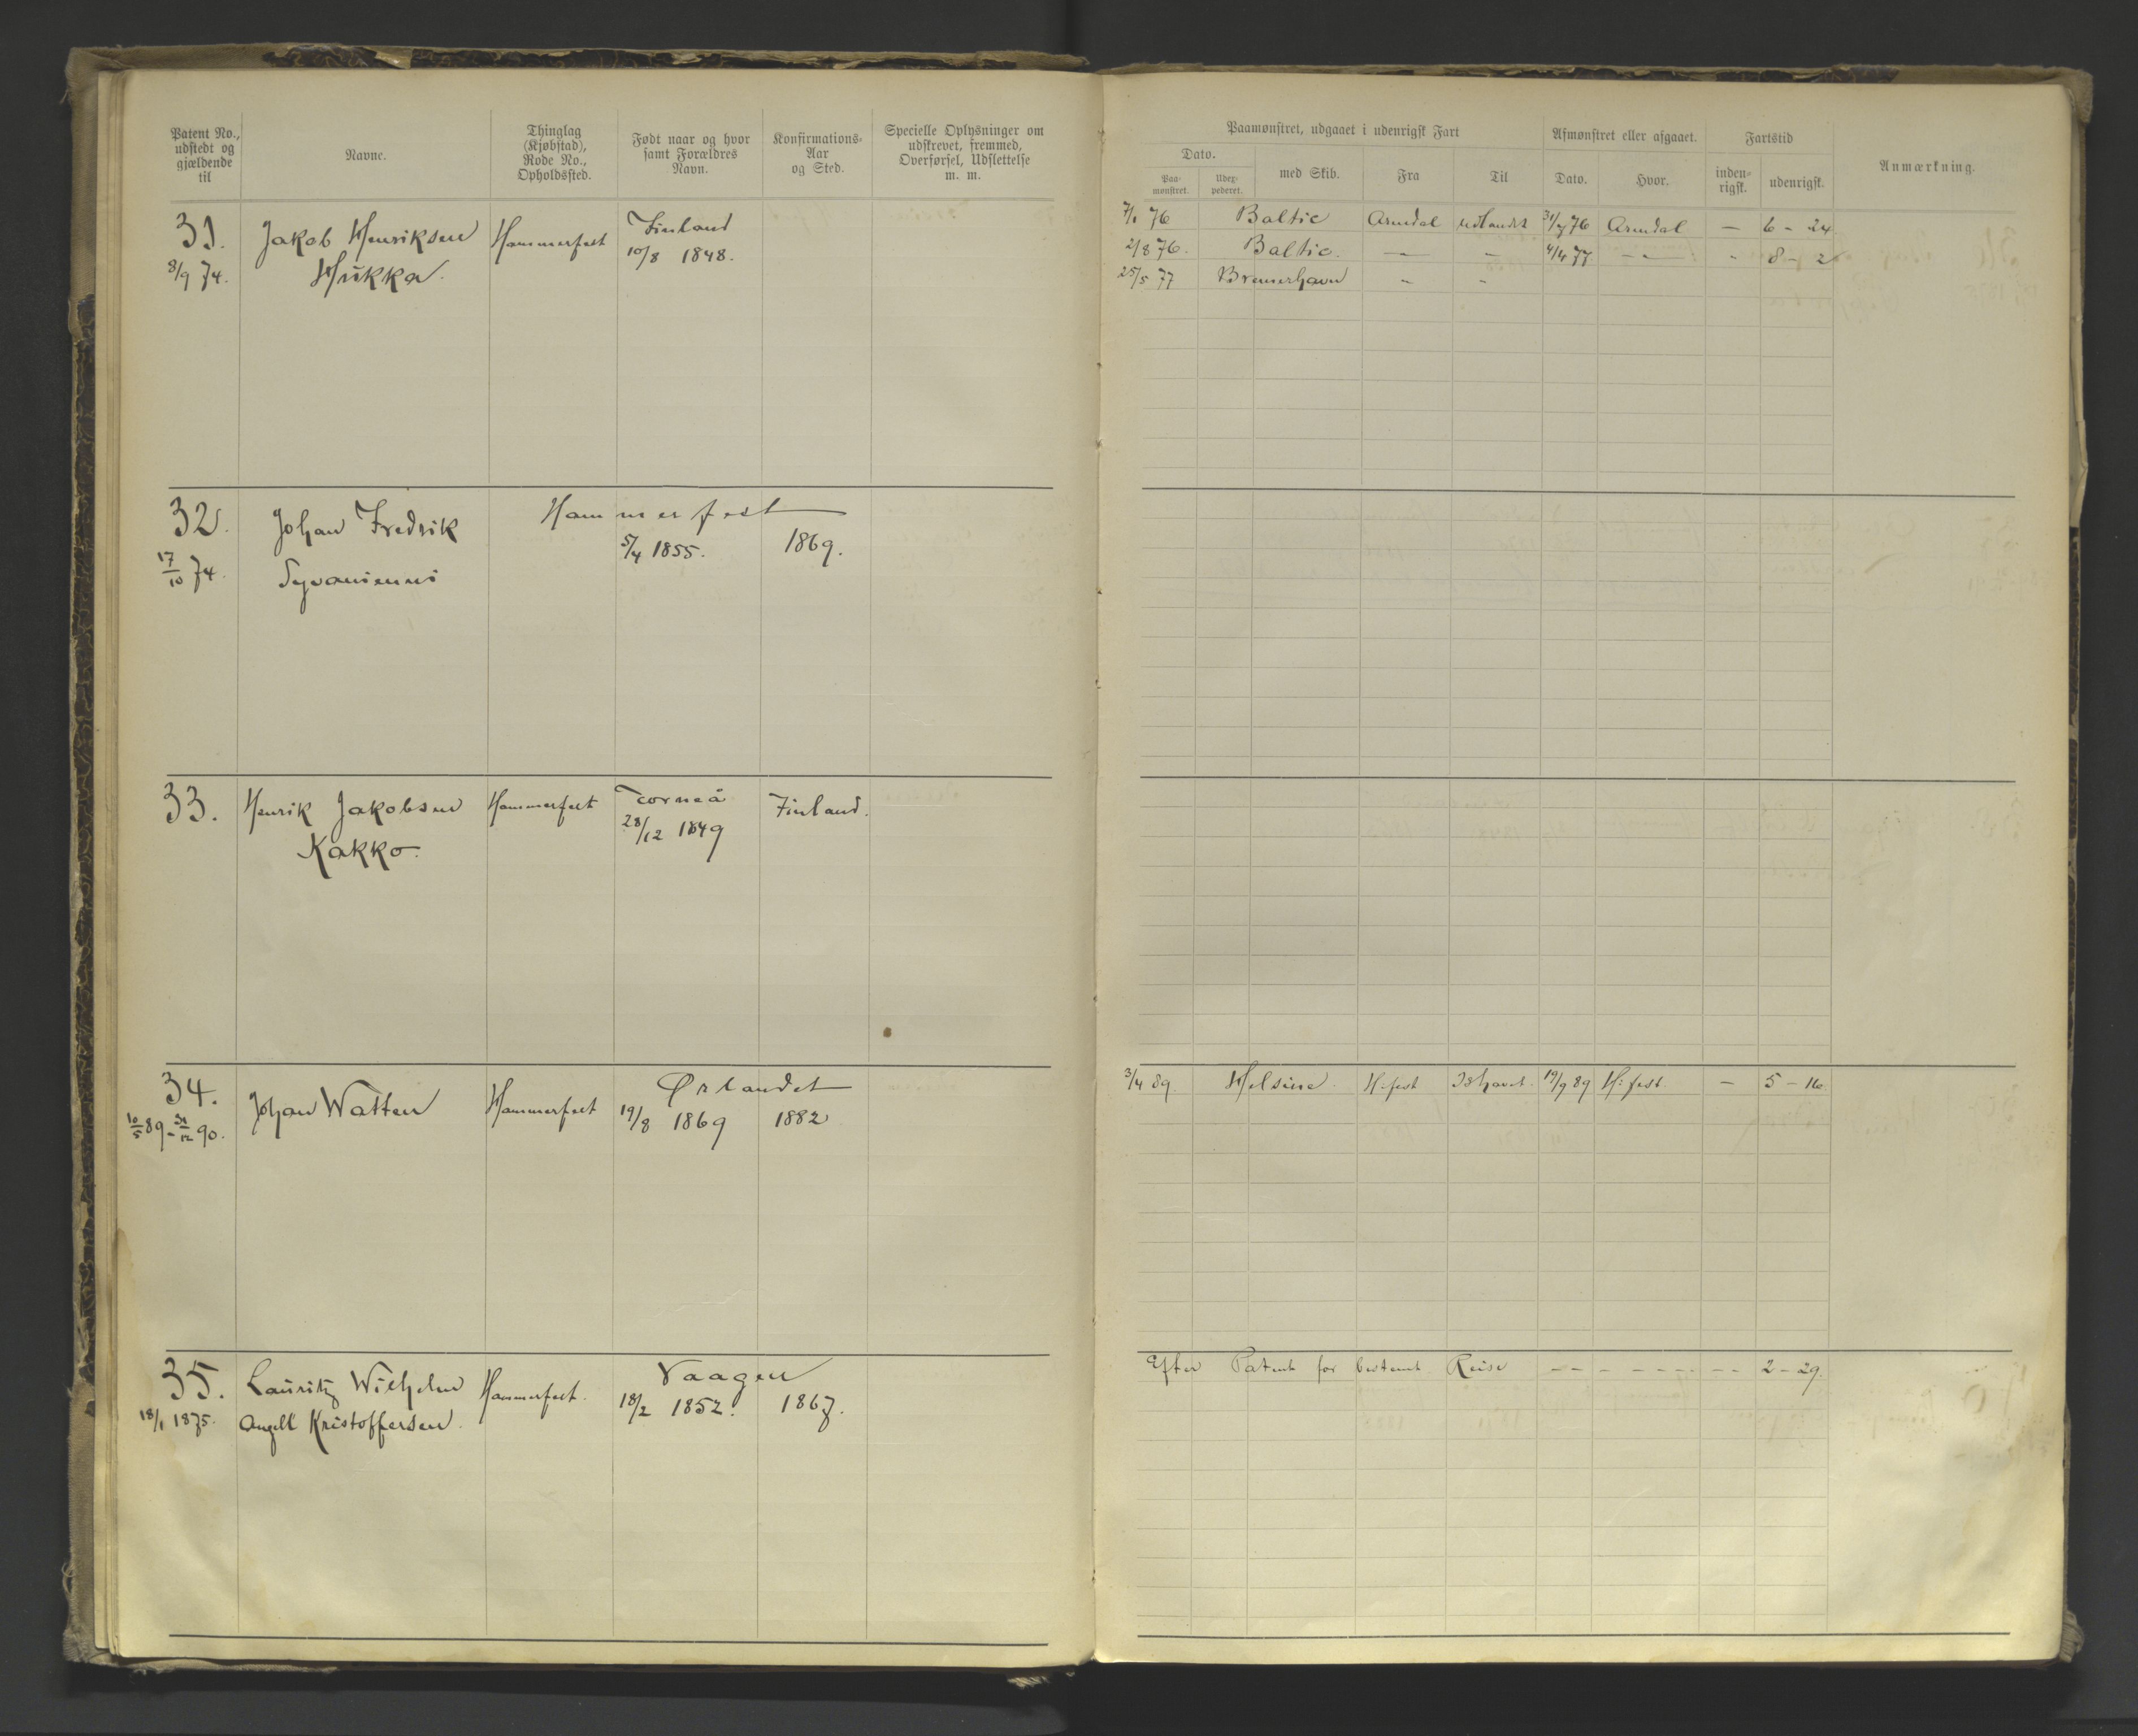 Patent No.,
udstedt og
gjældende
til
Navne.
Thinglag
(Kjøbstad),
Rode No.,
Opholdssted.
Født naar og hvor
samt Forældres
Navn.
Konfirmations-
Aar
og Sted.
Specielle Oplysninger om
udskrevet, fremmed,
Overførsel, Udslettelse
m. m.
31. Jakob Henriksen Hammerfest Finland
8/9 74. Hukka. 10/8 1848.
32. Johan Fredrik Hammerfest
17/10 74. 5/4 1855. 1869.
33. Henrik Jakobsen Hammerfest Torneå Finland.
Kakko. 28/12 1849
34. Johan Watten Hammerfest Ørlandet
10/5 89 - 31/12 90. 19/8 1869 1882
35. Lauritz Wilhelm Hammerfest. Vaagen
18/1 1875. Angell Kristoffersen. 18/2 1852. 1867.
Paamønstret, udgaaet i udenrigsk Fart
Afmønstret eller afgaaet.
Fartstid
Anmærkning.
Dato.
Paa-
mønstret.
Udex-
pederet.
med Skib.
Fra
Til
Dato.
Hvor.
inden-
rigsk.
udenrigsk.
7/1 76 Baltic Arendal udlandet 31/7 76 Arendal — 6 - 24
2/8 76. Baltic. — — 4/4 77 — " — " 8 - 2
25/5 77 Bremerhavn " "
3/4 89. H:fest Ishavet. 19/9 89 H:fest. — 5 - 16
Efter Patent for bestemt Reise — — — — — — — 2 - 29.